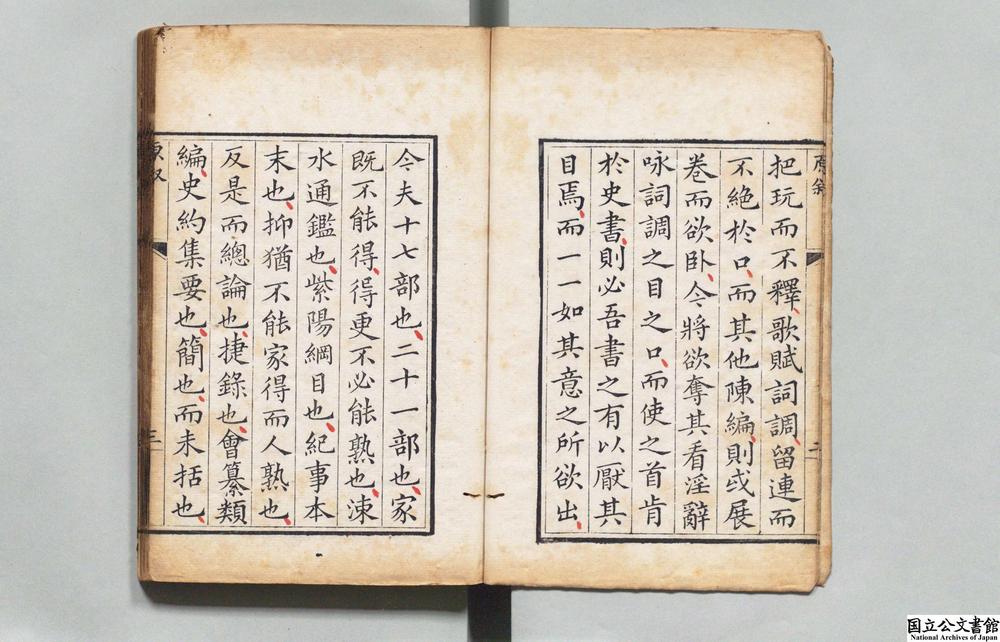 把玩而不釋歌賦詞調留連而
不絕於口而其他陳編則或展
卷而欲卧今將欲奪其看淫辭
咏詞調之目之口而使之首肯
於史書則必吾書之有以厭其
目焉而一一如其意之所欲出
二
今夫十七部也二十一部也家
既不能得得更不必能熟也涑
水通鑑也紫陽綱目也紀事本
末也抑猶不能家得而人熟也
反是而總論也捷錄也會纂類
編史約集要也簡也而未括也
三
国立公文書館
National Archives of Japan